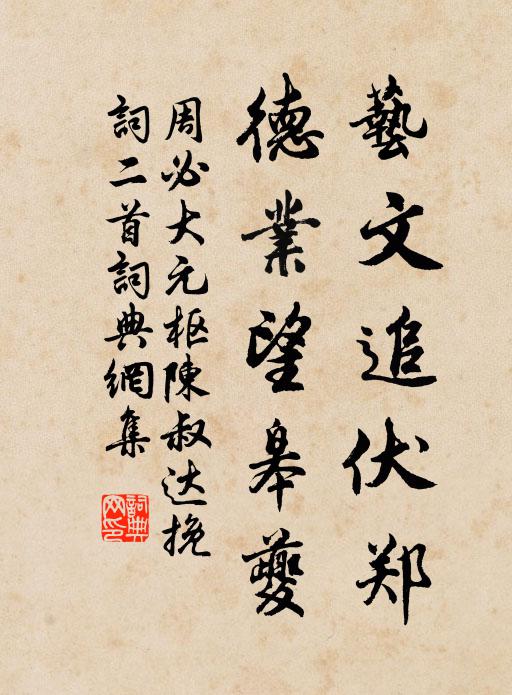 藝文追伏郑
德業望皋夔
周必大元枢陳叔达挽
詞二首詞典網集
詞典网印